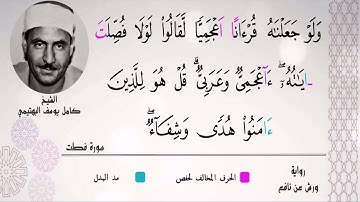 وَلَوْ جَعَلْنَٰهُ قُرْءَانًا اَعْجَمِيًّا لَّقَالُواْ لَوْلَا فُصِّلَتَ
اٰيَٰتُهُۥٓۖ ءَا۬عْجَمِيّٞ وَعَرَبِيّٞۖ قُلْ هُوَ لِلَّذِينَ
ءَامَنُواْ هُديٗ وَشِفَآءٞۖ
الشيخ
كامل يوسف البهتيمي
سورة فصلت
رواية
ورش عن نافع
الحرف المخالف لحفص
مد البدل